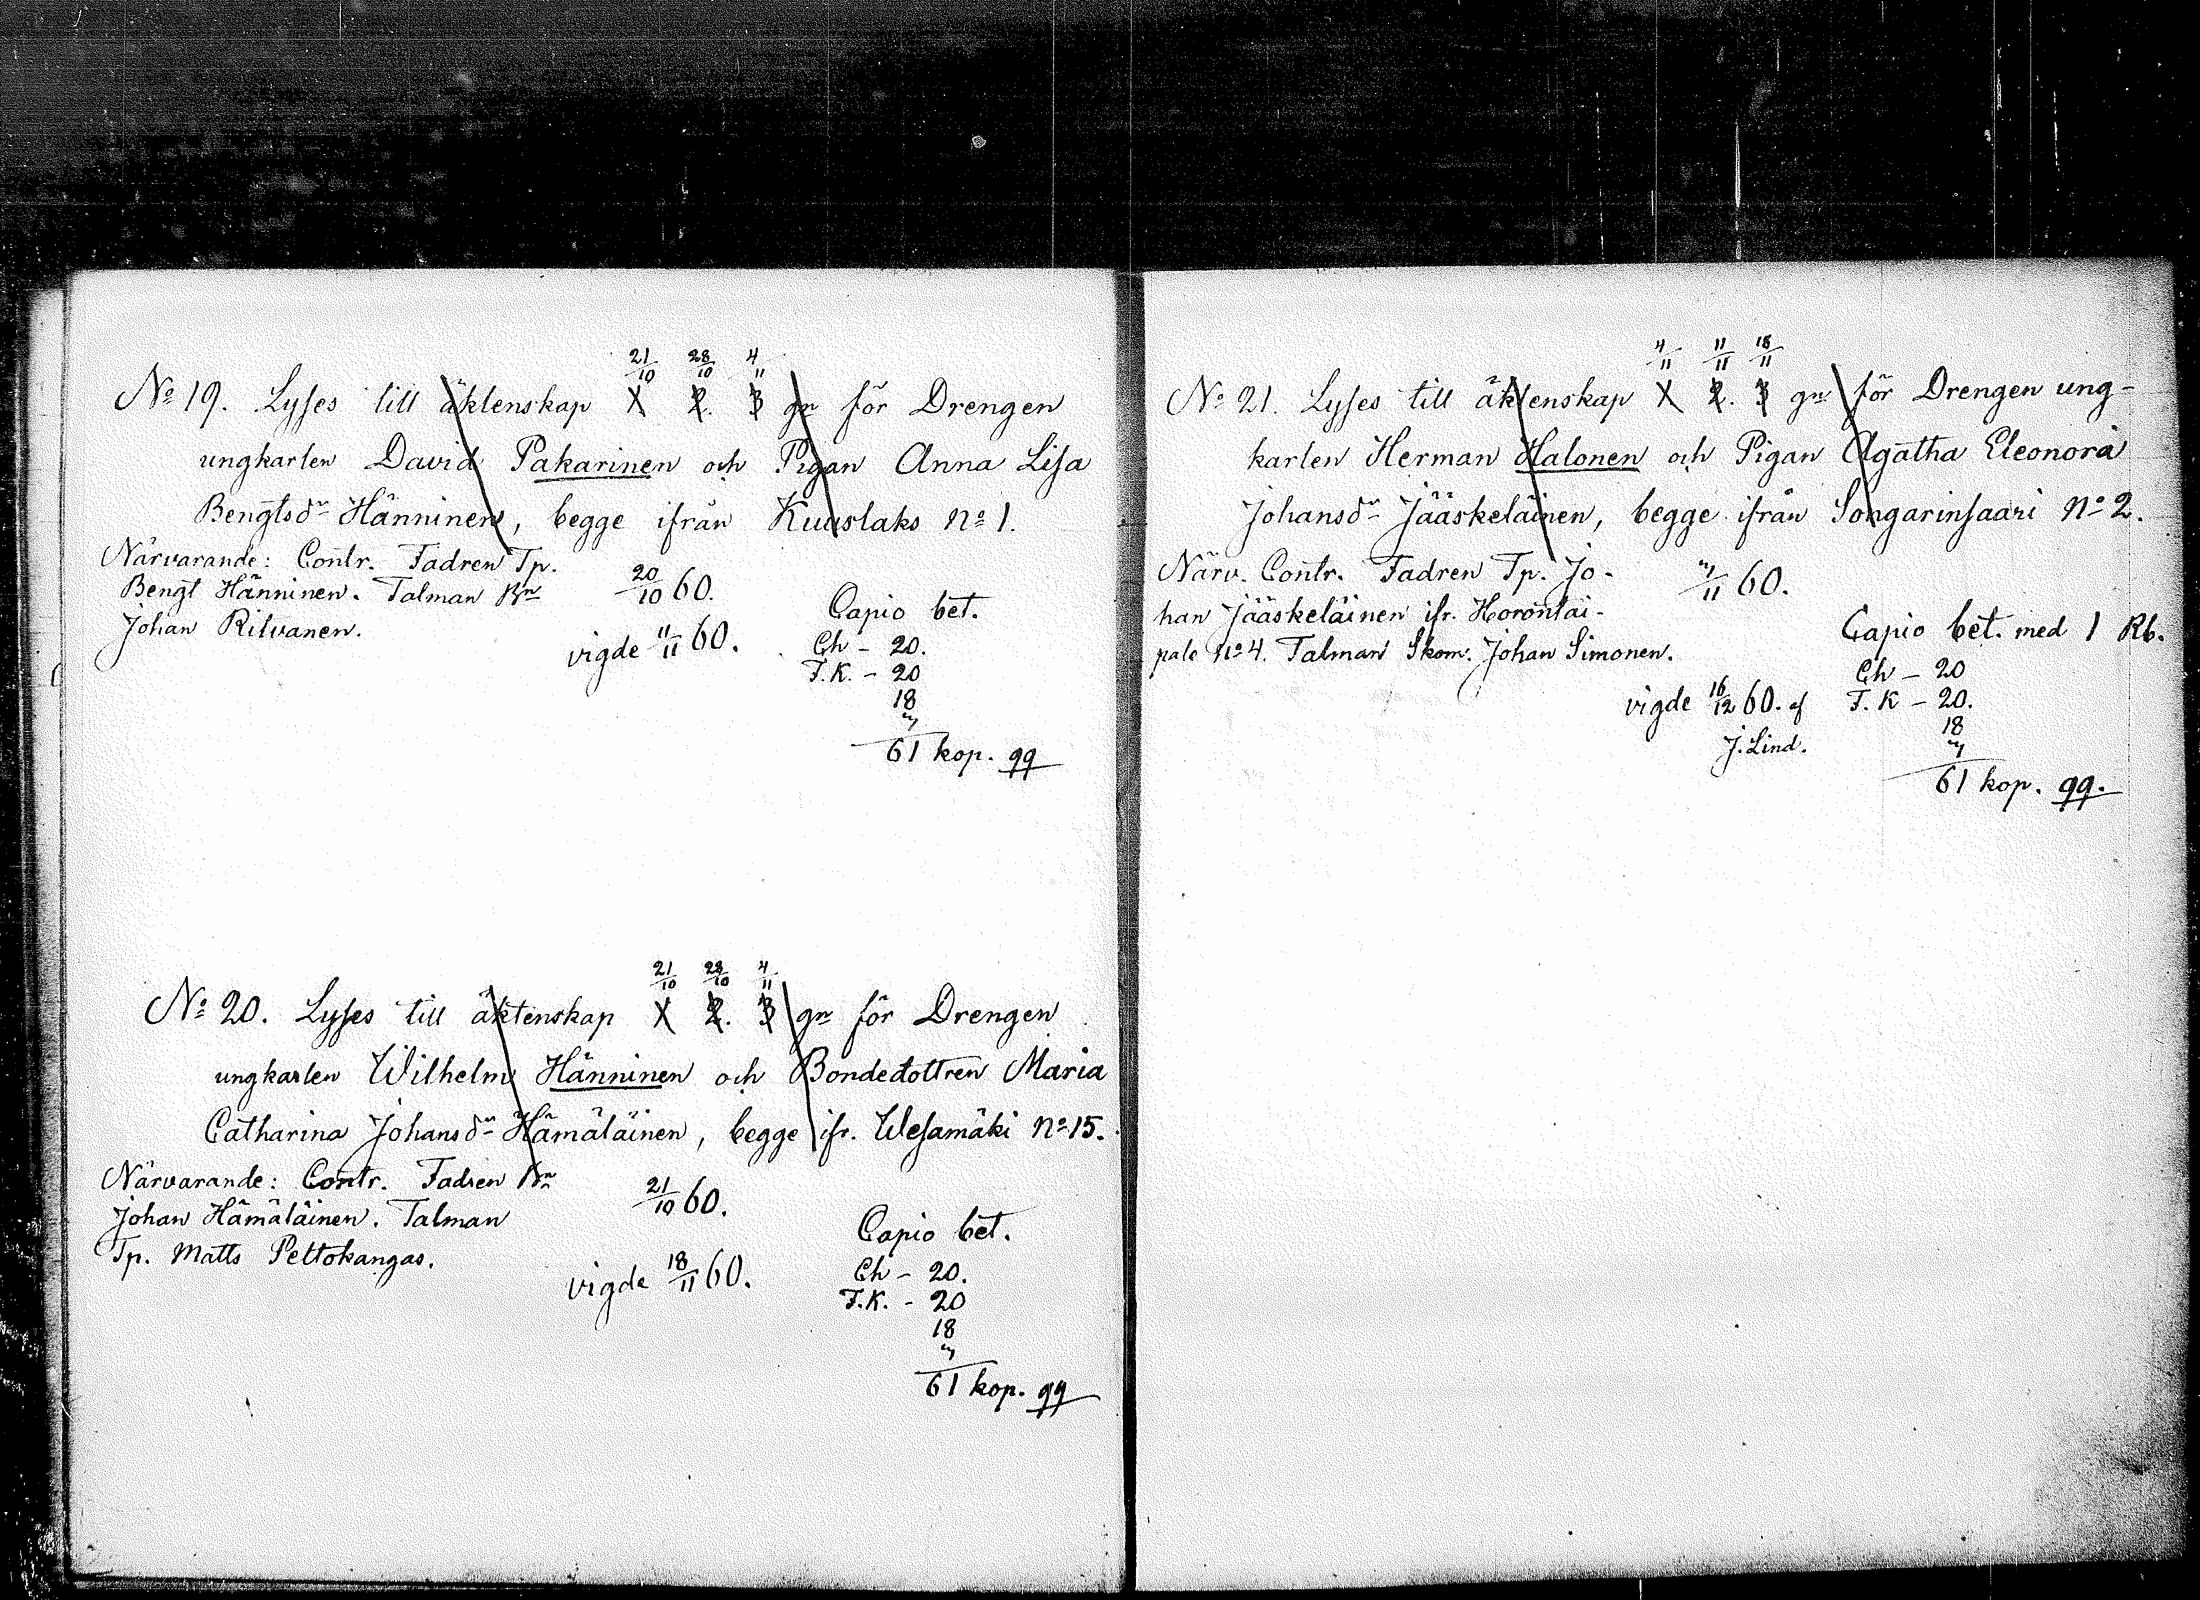 21/10 28/10 4/11
No 19. Lyses till äktenskap 1 2. 3 gn för Drengen
ungkarlen David Pakarinen och Pigan Anna Lisa
Bengtsdr Hänninen, begge ifrån Kuuslaks No 1.
Närvarande: Contr. Fadren Tp.
Bengt Hänninen. Talman Bn
Johan Ritvanen.
20/10 60.
vigde 11/11 60.
Capio bet.
Ch - 20.
F.K. - 20
18
3
61 kop. qq
21/10 28/10 4/11
No 20. Lyses till äktenskap 1 2. 3 gn för Drengen
ungkarlen Wilhelm Hänninen och Bondedottren Maria
Catharina Johansdr Hämäläinen, begge ifr. Wesamäki No 15.
Närvarande: Contr. Fadren Bn
Johan Hämäläinen. Talman
Tp. Matts Peltokangas.
21/10 60.
vigde 18/11 60.
Capio bet.
Ch - 20.
F.K. - 20
18
3
61 kop. qq
4/11 11/11 18/11
No 21. Lyses till äktenskap 1 2. 3 gn för Drengen ung-
karlen Herman Halonen och Pigan Agatha Eleonora
Johansdr Jääskeläinen, begge ifrån Songarinsaari No 2.
Närv. Contr. Fadren Tp. Jo-
han Jääskeläinen ifr. Horontai-
pale No 4. Talman Skom. Johan Simonen.
3/11 60.
vigde 16/12 60. af
J. Lind.
Capio bet. med 1 Rb.
Ch - 20
F.K - 20.
18
3
61 kop. qq.